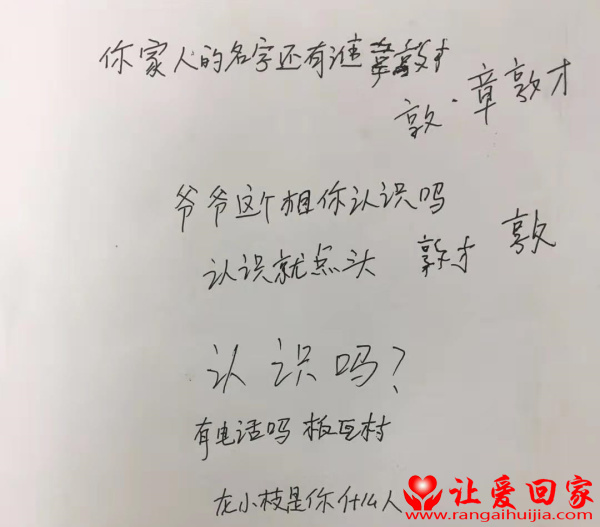 你家人的名字还有谁章敦才
敦·章敦才
爷爷这个相你认识吗
认识就点头 敦才 敦
认识吗?
有电话吗 板瓦村
龙小枝是你什么人
让爱回家
www.rangaihuijia.com